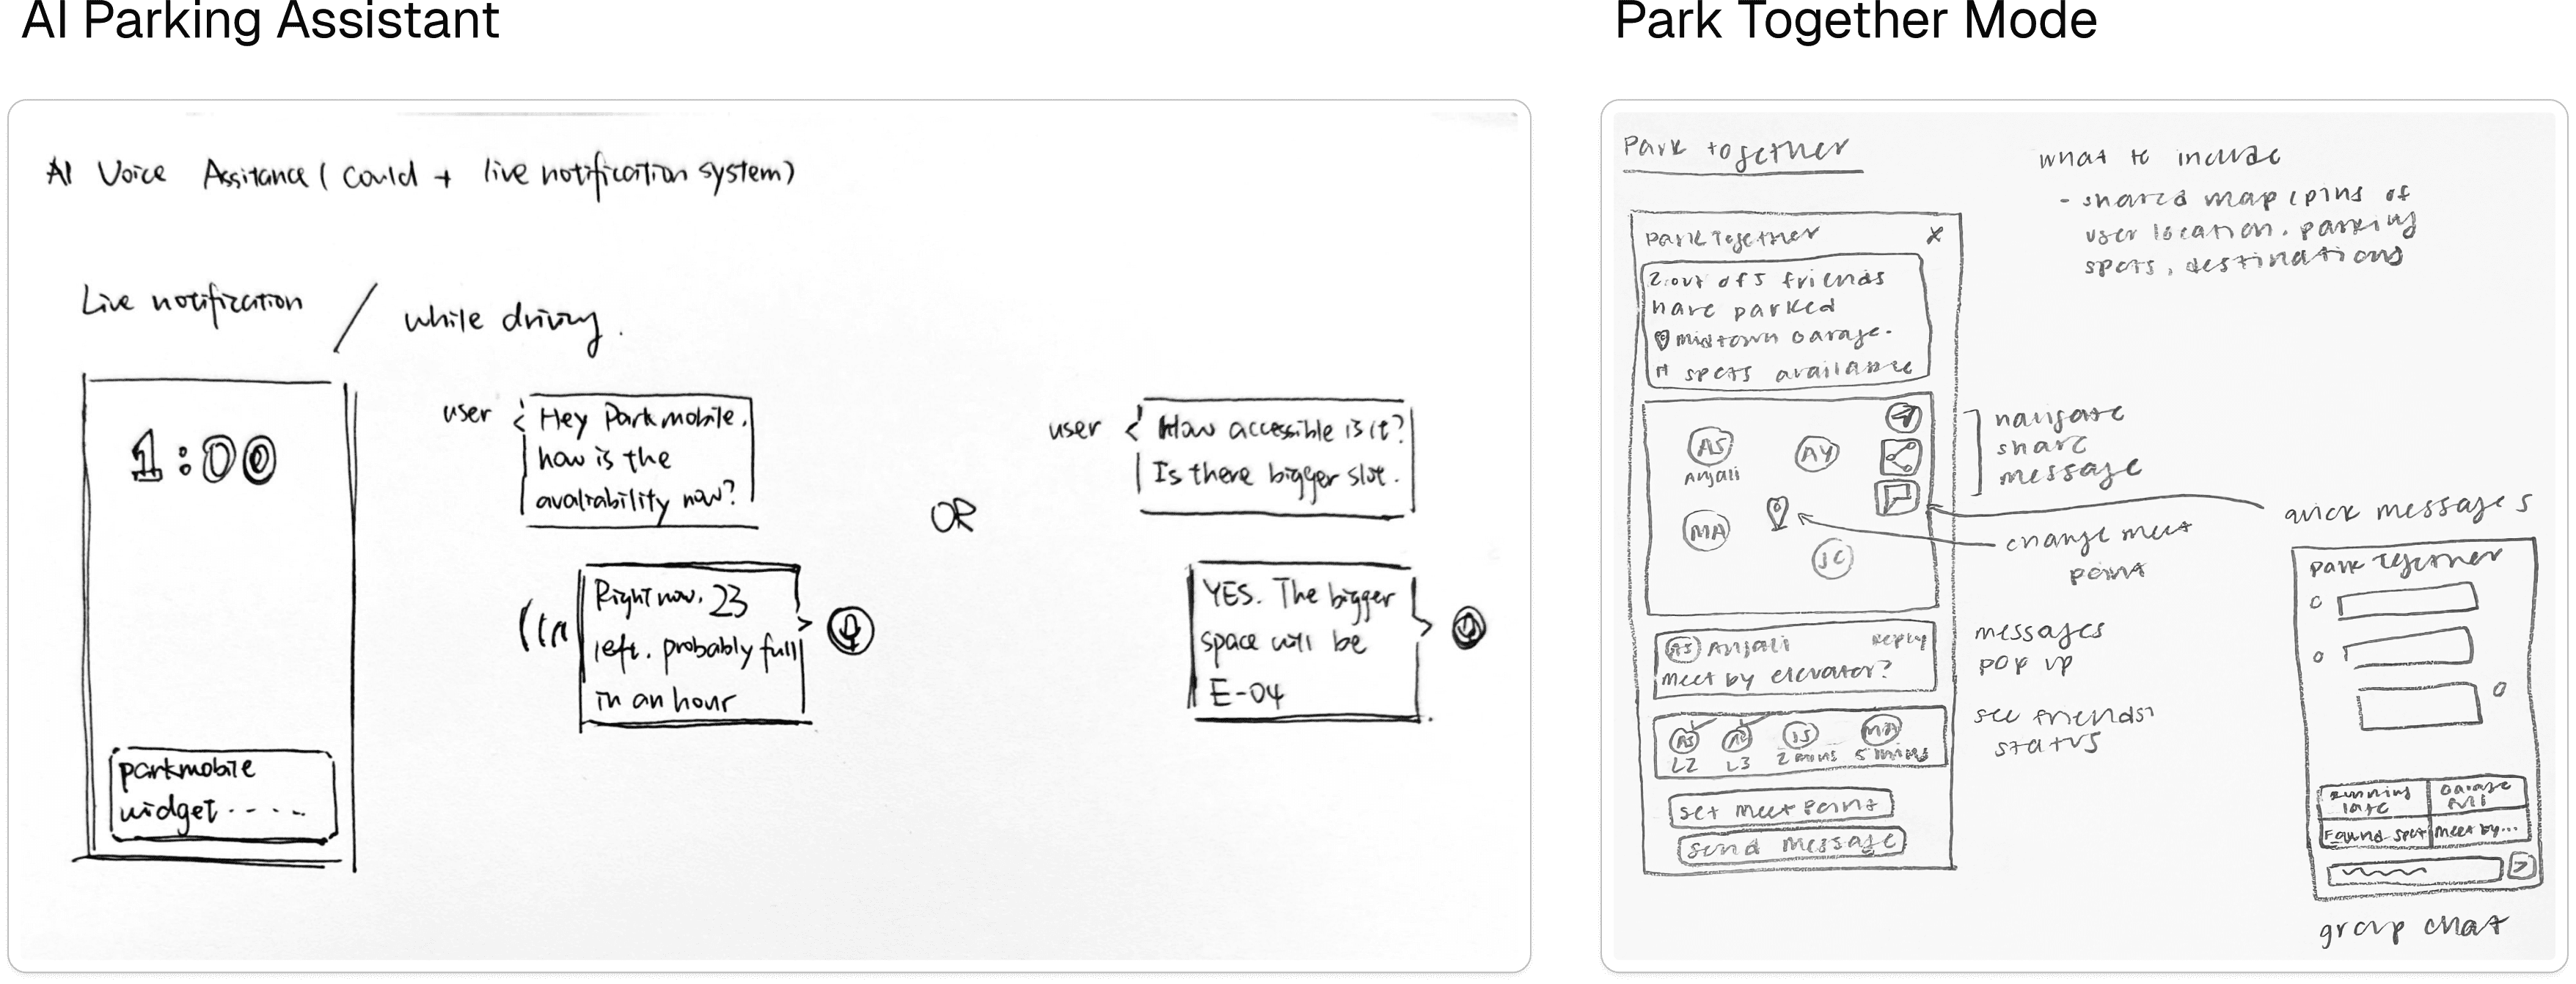 AI Parking Assistant
AI Voice Assitance ( could + live notification system)
Live notification / while driving.
1:00
parkmobile
widget.....
user
Hey Parkmobile.
how is the
avaliability now?
Right now. 23
left. probably full
in an hour
OR
user
How accessible is it?
Is there bigger slot.
YES. The bigger
space will be
E-04
Park Together Mode
Park together
what to include
- shared map (pins of
user location, parking
spots, destinations
Park Together X
2 out of 5 friends
have parked
midtown Garage.
spots available
AS
Anjali
AY
MA
JC
navigate
share
message
change meet
point
quick messages
AS Anjali Reply
Meet by elevator?
messages
pop up
AS
L2
L3
JS
2 mins
MA
5 mins
see friends'
status
set meet point
send message
Park Together
Running
late
Garage
full
Found spot
meet by...
group chat